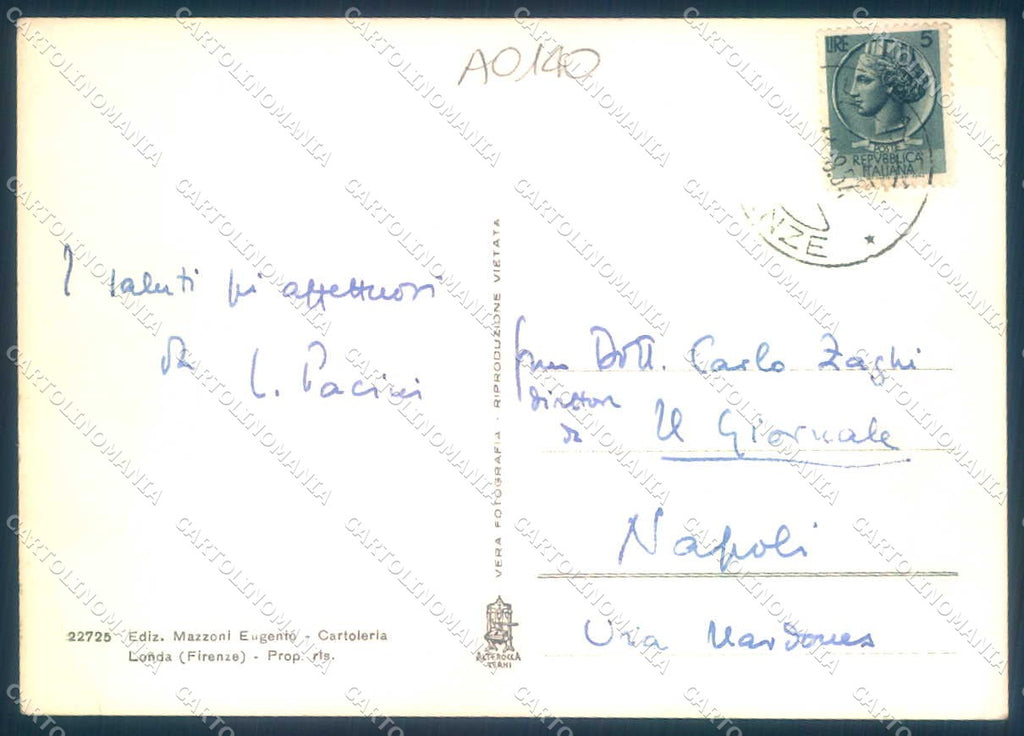 A0140
LIRE 5
POSTE
REPVBBLICA
ITALIANA
NZE
I saluti più affettuosi
da
L. Pacini
VERA FOTOGRAFIA - RIPRODUZIONE VIETATA
Dott. Carlo Zaghi
direttore
de
Il Giornale
Napoli
Via Nardones
22725 Ediz. Mazzoni Eugenio - Cartoleria
Londa (Firenze) - Prop. ris.
ALTEROCCA
TERNI
CARTOLINOMANIA